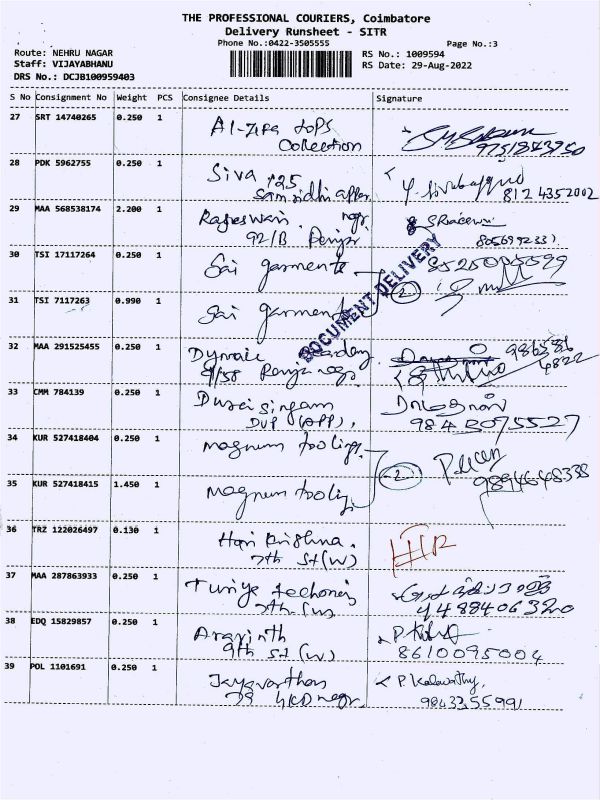 THE PROFESSIONAL COURIERS, Coimbatore
Delivery Runsheet - SITR
Phone No.:0422-3505555
Page No.:3
Route: NEHRU NAGAR
RS No.: 1009594
Staff: VIJAYABHANU
RS Date: 29-Aug-2022
DRS No.: DCJB100959403
S No Consignment No Weight PCS Consignee Details Signature
27 SRT 14740265 0.250 1
Al-zifa tops
Collection
9751843350
28 PDK 5962755 0.250 1
Siva 125
8124352002
29 MAA 568538174 2.200 1
Rajeswari
92/B
8056992331
30 TSI 17117264 0.250 1
Sai garments
8526095099
DOCUMENT DELIVERY
2
31 TSI 7117263 0.990 1
Sai garments
32 MAA 291525455 0.250 1
986586
4822
33 CMM 784139 0.250 1
Durai singam
DVP (APP),
9843075527
34 KUR 527418404 0.250 1
magnum tooling
2
9894648338
35 KUR 527418415 1.450 1
magnum tooling
36 TRZ 122026497 0.130 1
Hari Krishna.
7th St (W)
37 MAA 287863933 0.250 1
38 EDQ 15829857 0.250 1
Aravinth
9th St (W)
8610095004
39 POL 1101691 0.250 1
Jayavarthan
P. Kalavathy,
9843355991